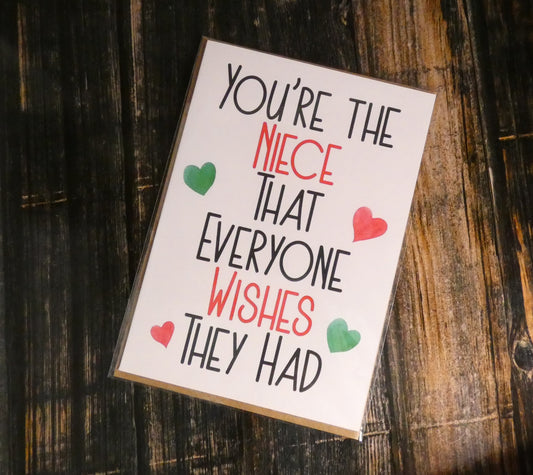 You're the
Niece
That
Everyone
Wishes
They Had